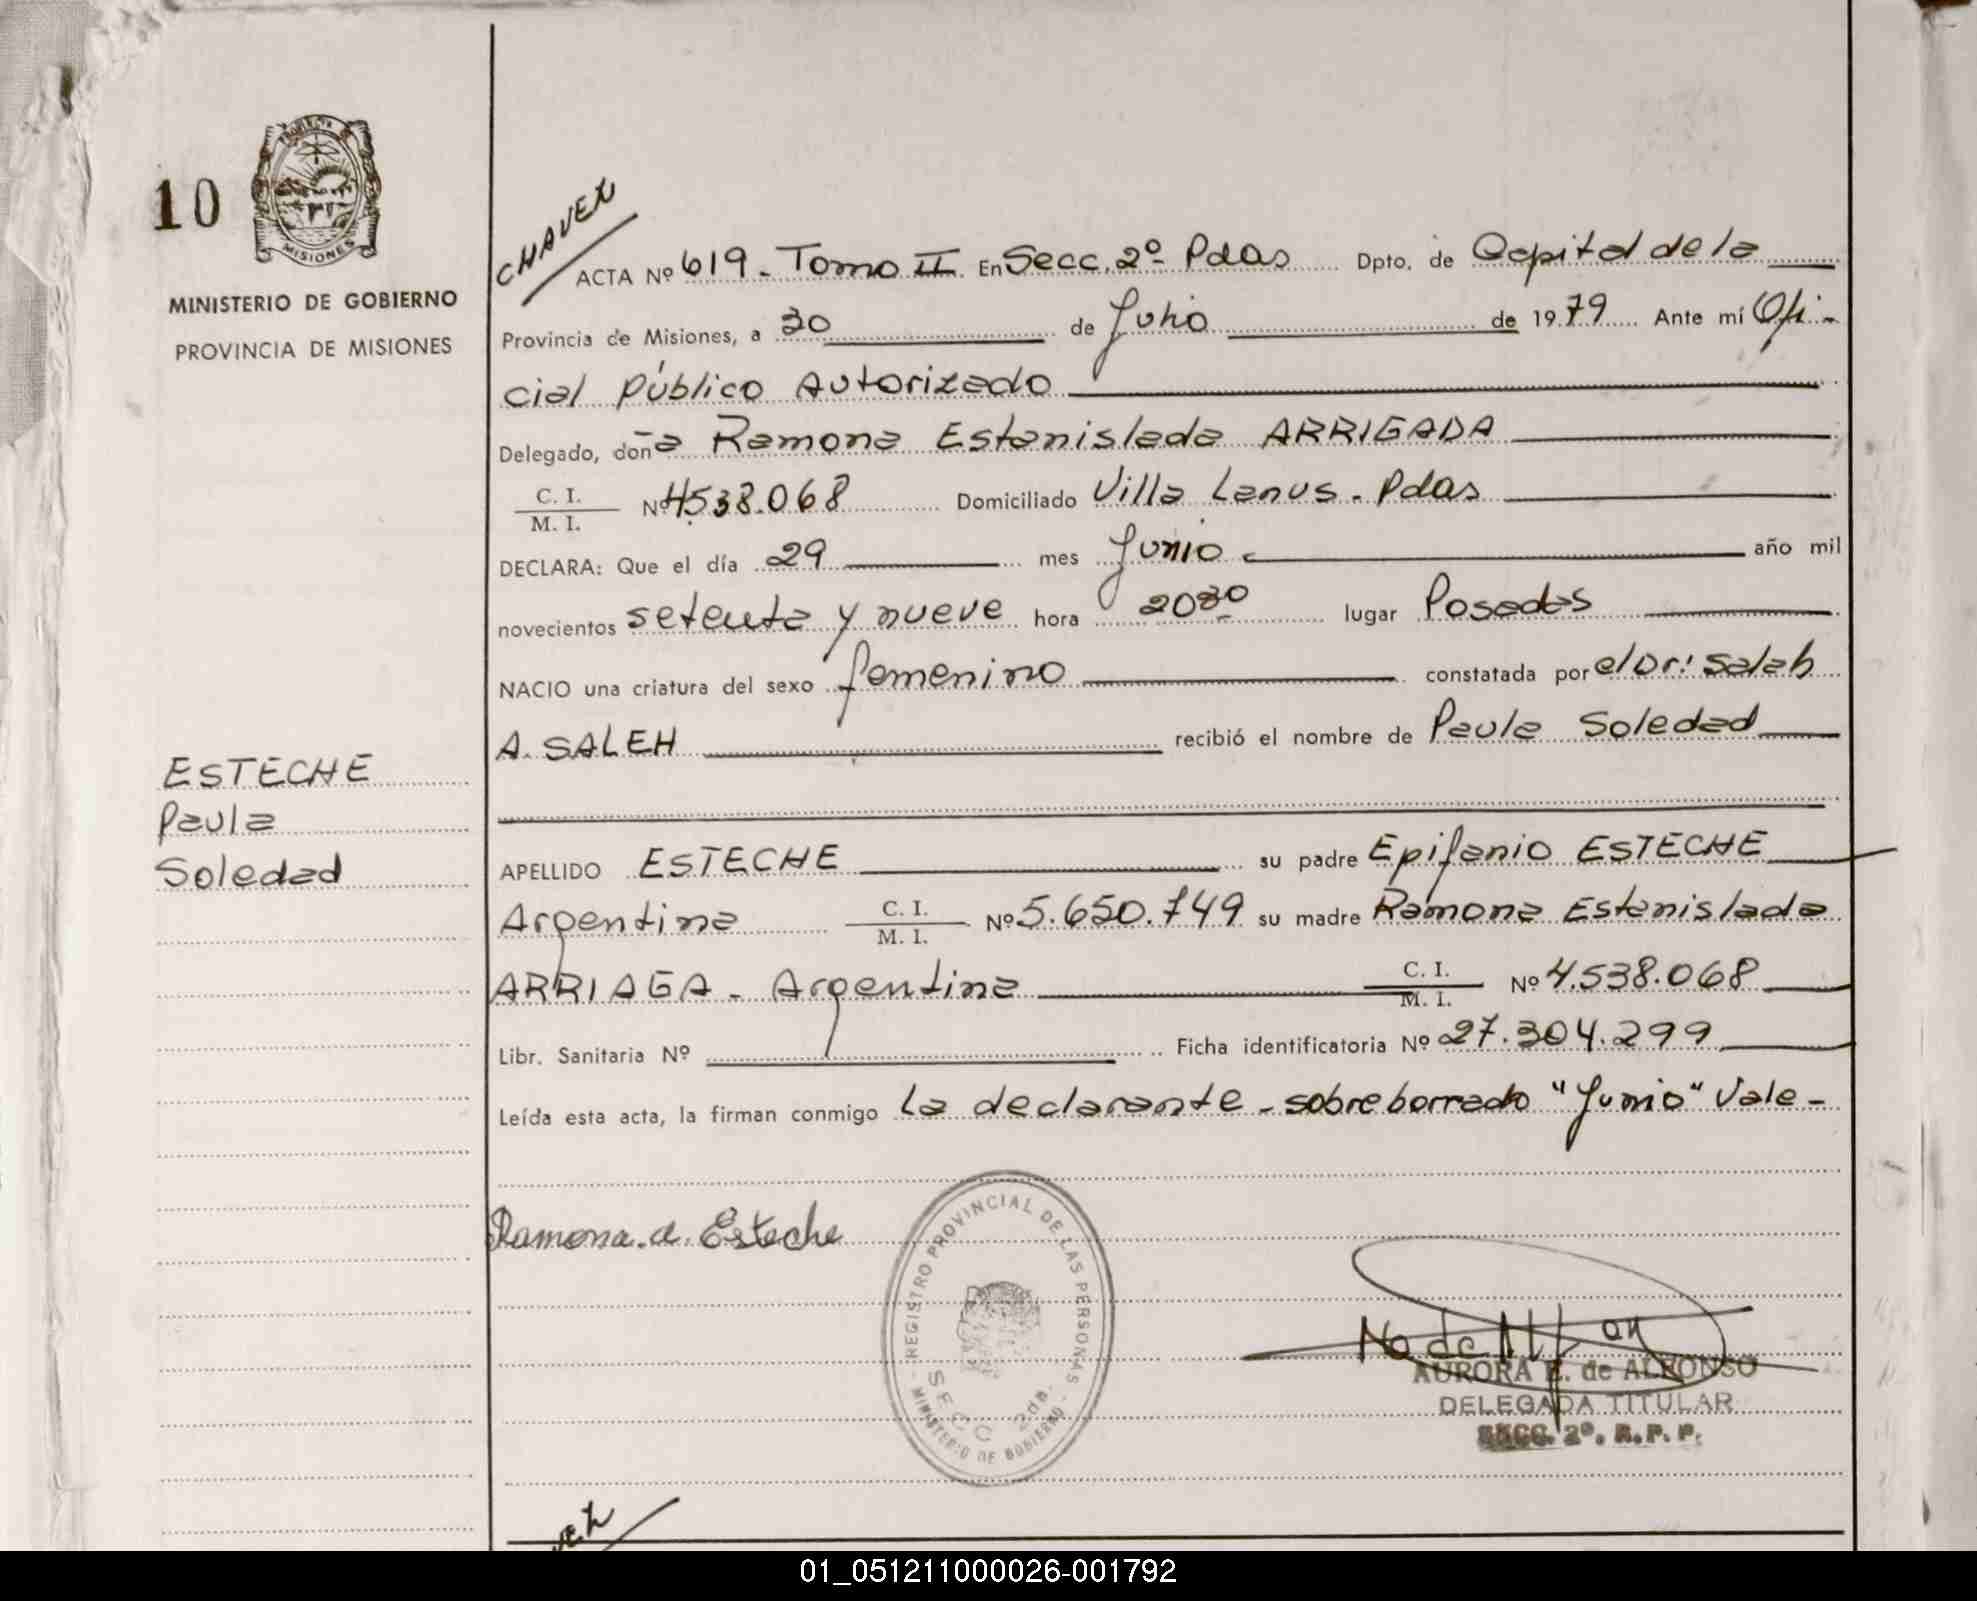 10
PROVINCIA DE
MISIONES
MINISTERIO DE GOBIERNO
PROVINCIA DE MISIONES
ESTECHE
Paula
Soledad
CHAVEZ
ACTA Nº 619 - Tomo II En Secc. 2º Pdas Dpto. de Capital de la
Provincia de Misiones, a 30 de Julio de 1979 Ante mí Ofi-
cial Público Autorizado
Delegado, doña Ramona Estanislada ARRIGADA
C. I. / M. I. Nº 4538.068 Domiciliado Villa Lanus - Pdas
DECLARA: Que el día 29 mes Junio año mil
novecientos setenta y nueve hora 2030 lugar Posadas
NACIO una criatura del sexo femenino constatada por el Dr: Salah
A. SALEH recibió el nombre de Paula Soledad
APELLIDO ESTECHE su padre Epifanio ESTECHE
Argentina C. I. / M. I. Nº 5.650.749 su madre Ramona Estanislada
ARRIAGA - Argentina C. I. / M. I. Nº 4.538.068
Libr. Sanitaria Nº Ficha identificatoria Nº 27.304.299
Leída esta acta, la firman conmigo la declarante - sobreborrado "Junio" Vale -
Ramona. a. Esteche
REGISTRO PROVINCIAL DE LAS PERSONAS
SECC 2da.
MINISTERIO DE GOBIERNO
AURORA E. de ALFONSO
DELEGADA TITULAR
SECC. 2º. R. P. P.
01_051211000026-001792